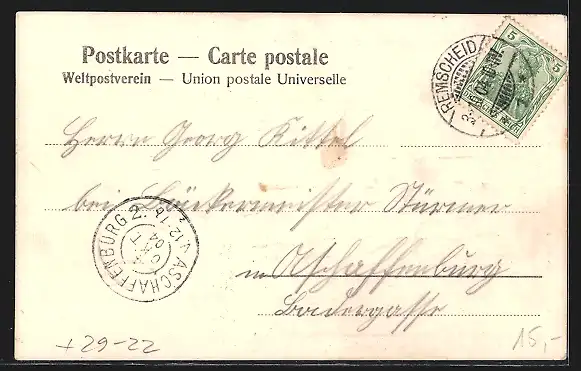 Postkarte — Carte postale
Weltpostverein — Union postale Universelle
REMSCHEID
5 5
Herrn Georg Kittel
bei Bäckermeister Stürmer
in Aschaffenburg
Badergasse
ASCHAFFENBURG 2.
OKT
04
+29-22
15,-